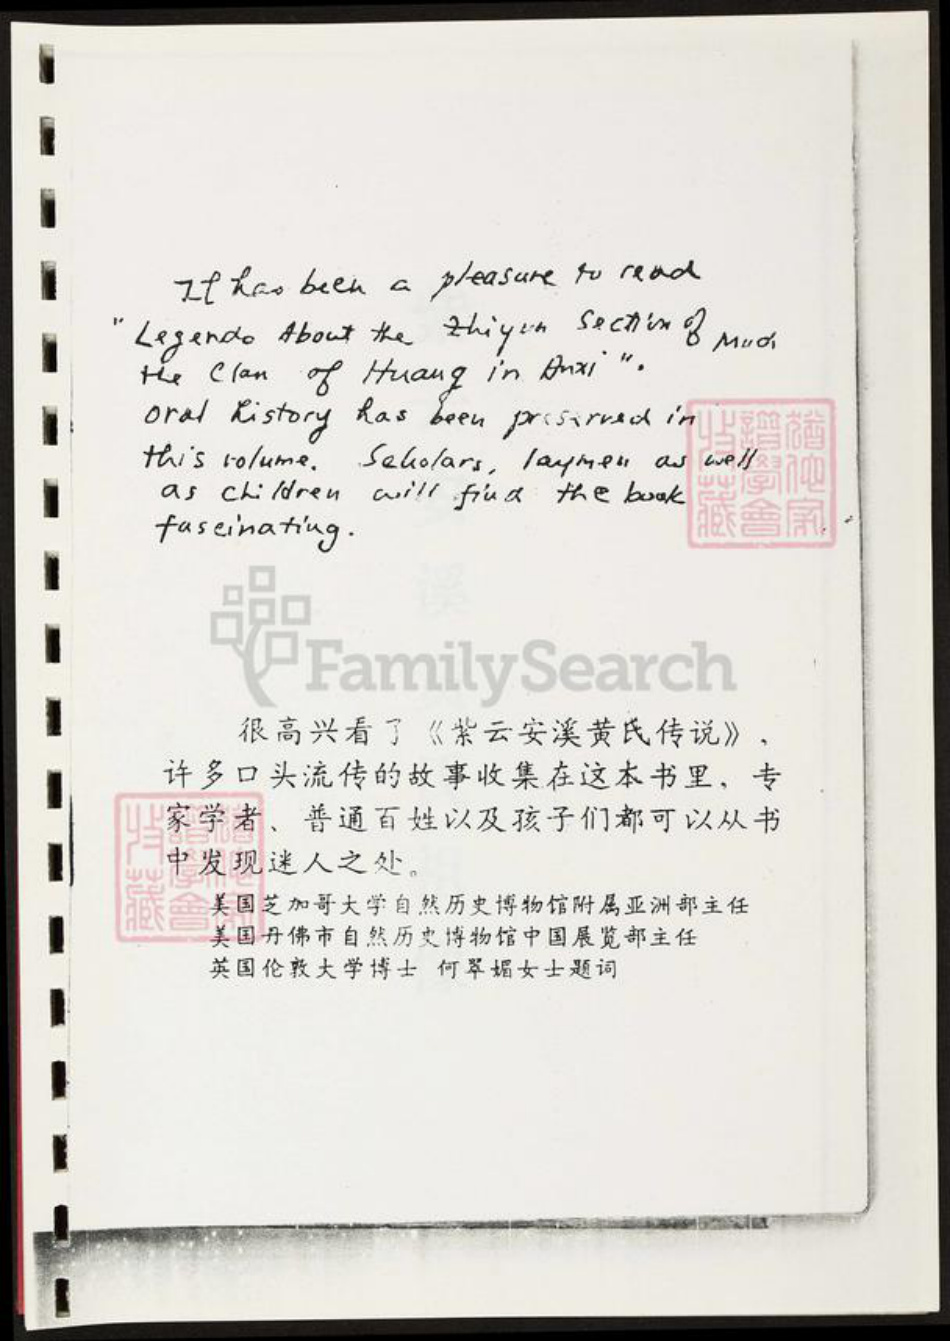 It has been a pleasure to read
"Legends About the Zhiyun Section of
the Clan of Huang in Anxi". Much
oral history has been preserved in
this volume. Scholars, laymen as well
as children will find the book
fascinating.
譜學會
收藏
FamilySearch
很高兴看了《紫云安溪黄氏传说》，
许多口头流传的故事收集在这本书里，专
家学者、普通百姓以及孩子们都可以从书
中发现迷人之处。
美国芝加哥大学自然历史博物馆附属亚洲部主任
美国丹佛市自然历史博物馆中国展览部主任
英国伦敦大学博士 何翠媚女士题词
譜學會
收藏